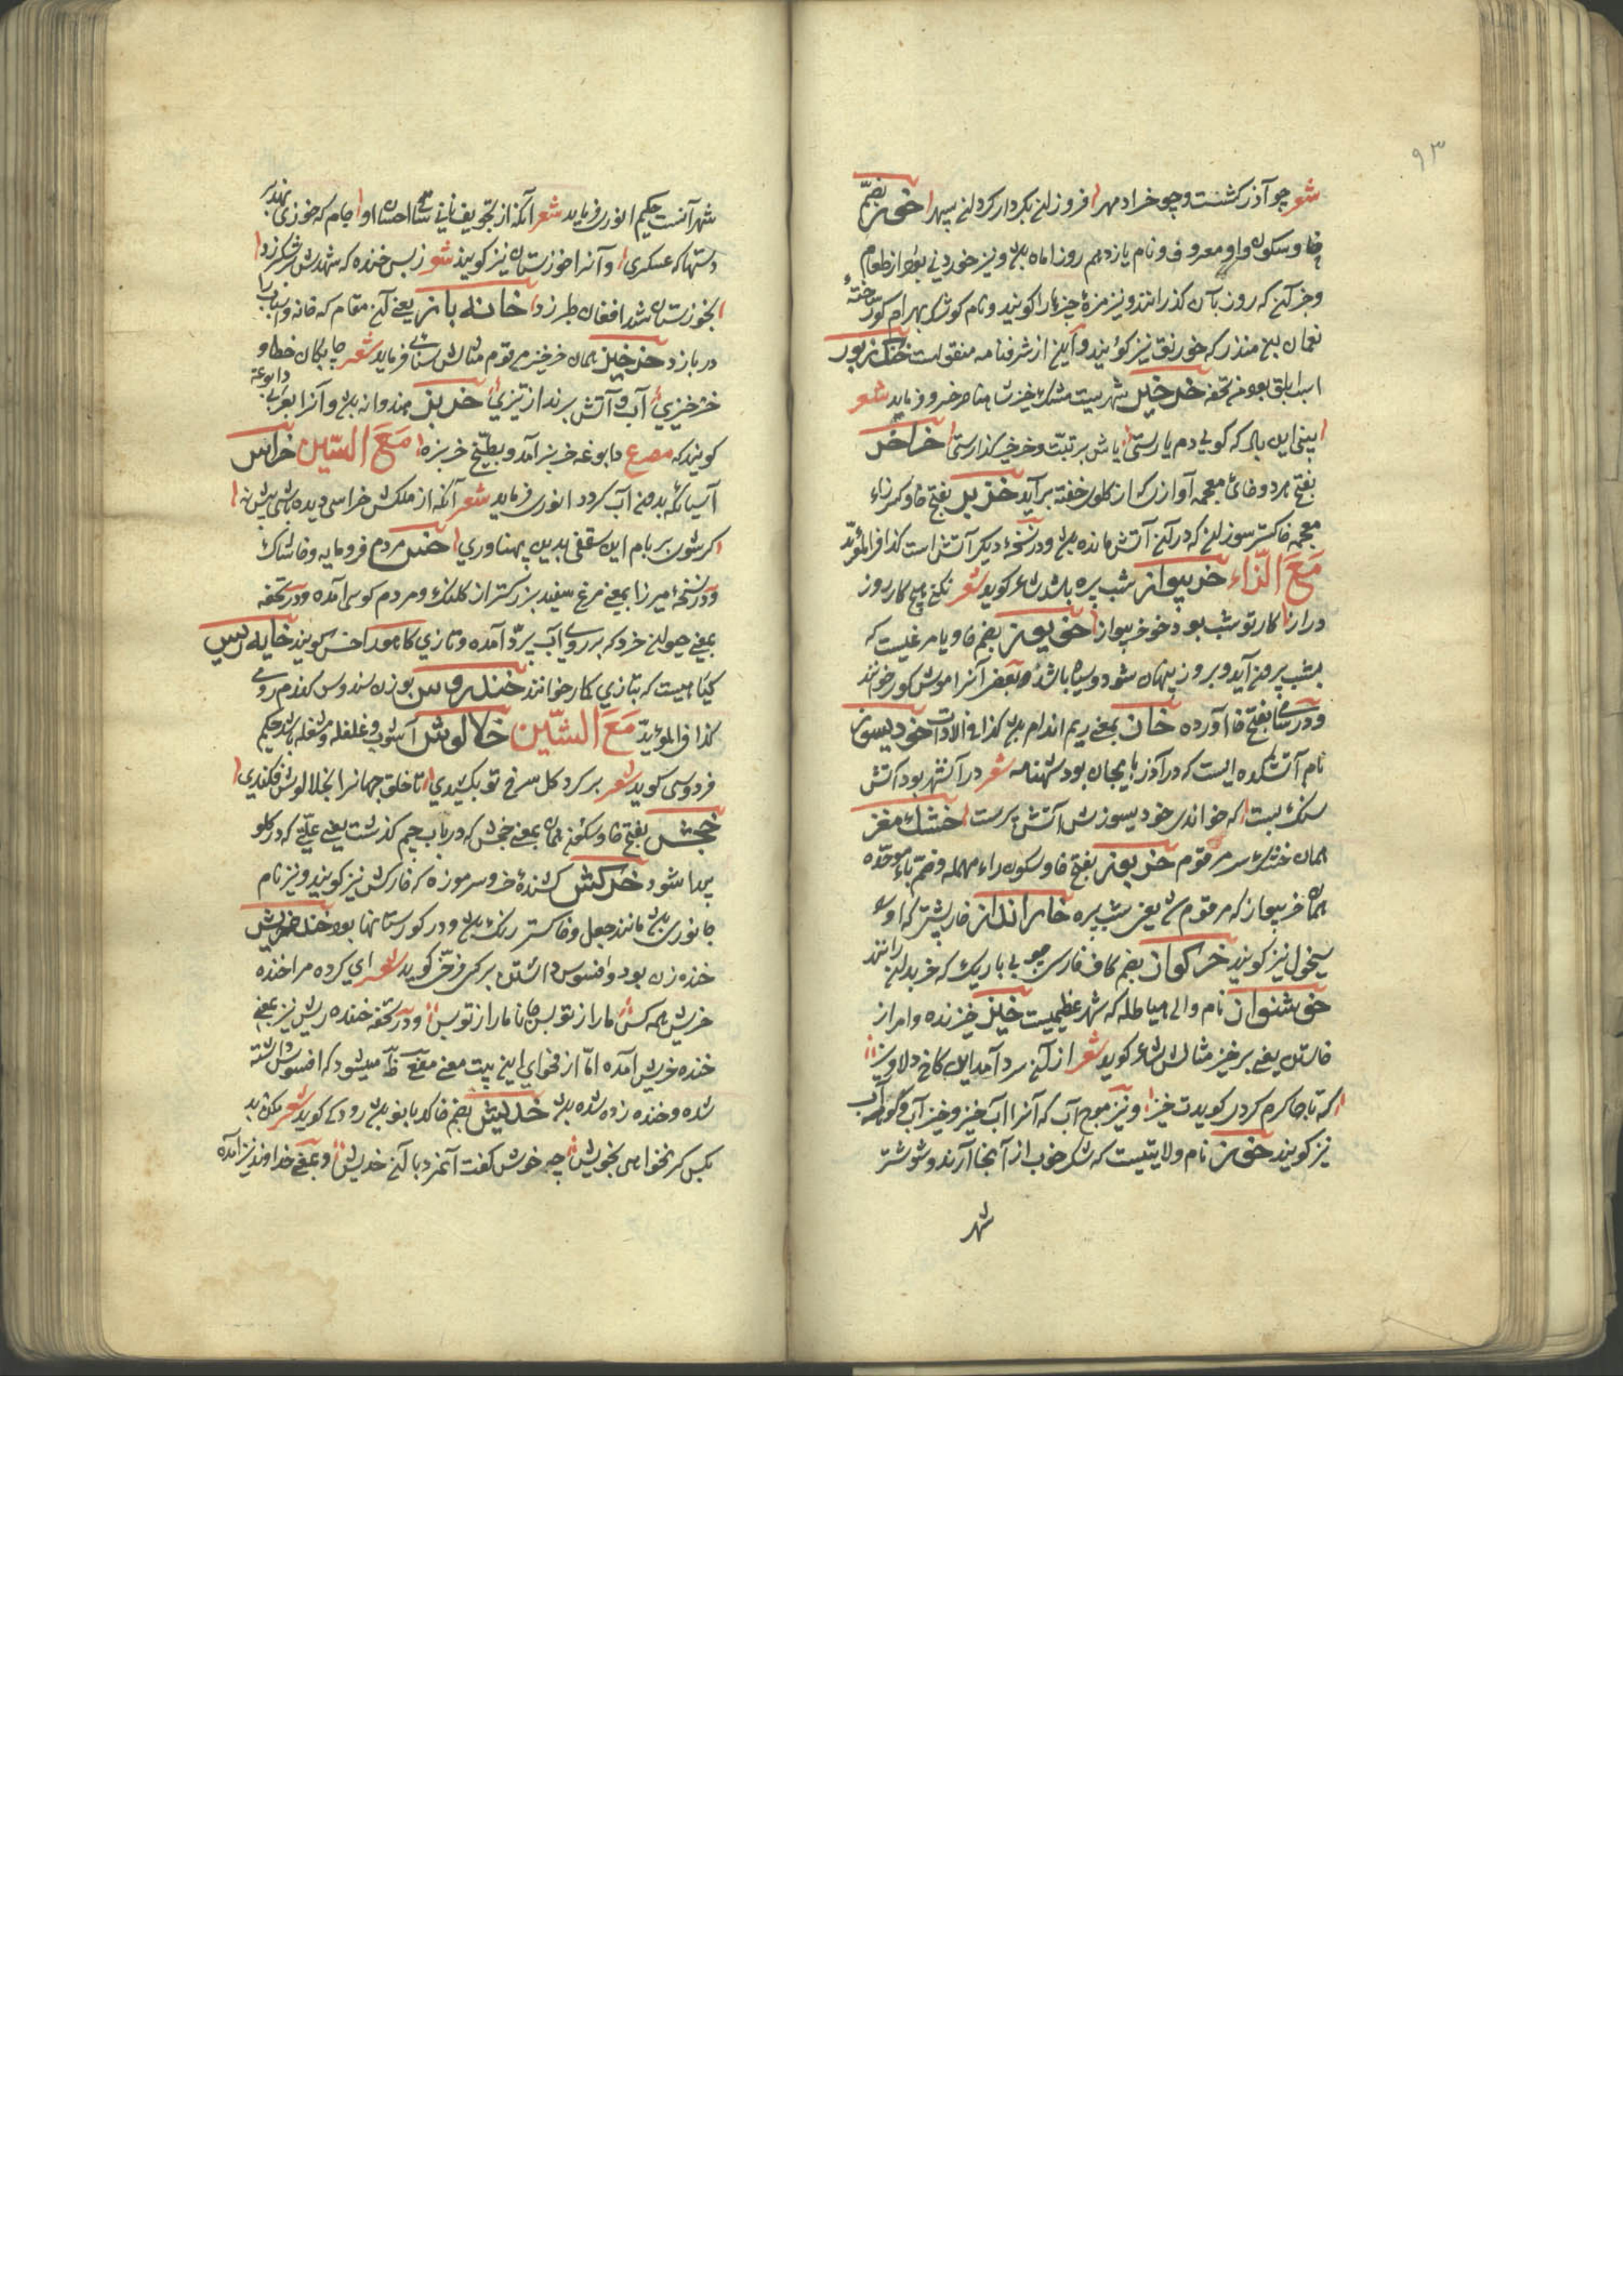 ٩٣
شعر چو آذر کشنست و چو خراد مهر فروزان بکردار کردان سپهر خور بضمّ
خا و سکون واو معروف و نام یازدهم روز از ماه و نیز خوردنی بود از طعام
و جز آن که روز بآن کذرانند و نیز مزهٔ چیزها را کویند و نام کوشک بهرام کور ساختهٔ
نعمان بن منذر که خورنق نیز کویند و این از شرفنامه منقول است خنک زیور
اسب ابلق بود من تحفه خرخیز شهریست مشک خیز شاعر فرماید شعر
خراخر
بفتح هر دو خای معجمه آوازی که از کلوی خفته برآید خزیر بفتح خا و کسر زاء
معجمه خاکستر سوزان که در آن آتش مانده و در نسخهٔ دیکر آتش است کذا فی المؤید
مَعَ الزّاء خربیواز شب پره باشد شاعر کوید شعر نکنی هیچ کار روز
دراز کار تو شب بود خوخربیواز خربیوز بضم خا و یا مرغیست که
بشب برون آید و بروز پنهان شود و سیاه باشد و بعضی آنرا موش کور خوانند
و در سامی بفتح خا آورده خاز بمعنی ریم اندام کذا فی الادات خودیسوز
نام آتشکده ایست که در آذربایجان بود شهنامه شعر در آن شهر بود آتش
سنک بست که خواندی خودیسوزش آتش پرست خشک مغز
همان خشک سر مرقوم خربوز بفتح خا و سکون راء مهمله و ضم باء موحّده
همان خربیواز که مرقوم شد یعنی شب پره خارانداز خارپشتی که او را
سیخول نیز کویند خرکواز بضم کاف فارسی چوبی باریک که خر بدان رانند
خوشنواز نام والی هیاطله که شهر عظیمیست خیز خیزنده و امر از
خاستن یعنی برخیز مثالش شاعر کوید شعر از آن سرد آمد این کاخ دلاویز
که تا جا کرم کردی کویدت خیز و نیز موج آب که آنرا آب خیز و خیز آب و کوهه آب
نیز کویند خوز نام ولایتیست که شکر خوب از آنجا آرند و شوشتر
شهر
شهر آنست حکیم انوری فرماید شعر آنکه از تجویف نابی احسان او جام که خوزی نهد بر
دستها که عسکری و آنرا خوزستان نیز کویند شعر ز بس خنده که شهدش بر شکر زد
بخوزستان شد افغان طبرزد خانه باز یعنی آن مقام که خانه و اسباب را
در بازد خرخیز همان خرخیز مرقوم مثالش سنائی فرماید شعر چابکان خطا و
خرخیزی آب و آتش برند از تیزی خربز هندوانه و آنرا بعربی دابوغه
کویند که مصرع دابوغه خربز آمد و بطّیخ خربزه مَعَ السّین خراس
آسیائی که بدون آب کردد انوری فرماید شعر آنکه از ملکش خراسی دیده باشی بیش نه
کر شوی بر بام این سقفی بدین پهناوری خس مردم فرومایه و خاشاک
و در نسخهٔ میرزا بمعنی مرغ سفید بزرکتر از کلنک و مردم کوسی آمده و در تحفه
بمعنی حیوان خرد که بر روی آب پرد آمده و بتازی کاهو را خس کویند خایه ریس
کیاهیست که بتازی کمار خوانند خندروس بوزن سندوس کندم رومی
کذا فی المؤید مَعَ الشّین خلالوش آشوب و غلغله و مشغله باشد حکیم
فردوسی کوید شعر بر کرد کل سرخ تو بکشیدی تا خلق جهانرا بخلالوش فکندی
خجش بفتح خا و سکون همان بمعنی خجش که در باب جیم کذشت یعنی علّتی که در کلو
پیدا شود خرکش کشندهٔ خر و سر موزه که خارکش نیز کویند و نیز نام
جانوری مانند جعل و خاکستر رنک و در کورستانها بود خنده خریش
خنده زن بود و افسوس داشتن بر کسی فرخی کوید شعر ای کرده مرا خنده
خریش همه کس ما را ز تو بس جانا ما را ز تو بس و در تحفه خنده ریش نیز بمعنی
خنده خریش آمده امّا از فحوای این بیت معنی مفعولی ظاهر میشود که افسوس داشته
شده و خنده زده شده خدیش بضم خا کدبانو رودکی کوید شعر مکن بد
بکس کر نخواهی بخویش چه خوش کفت آن مرد با آن خدیش و بمعنی خداوند نیز آمده